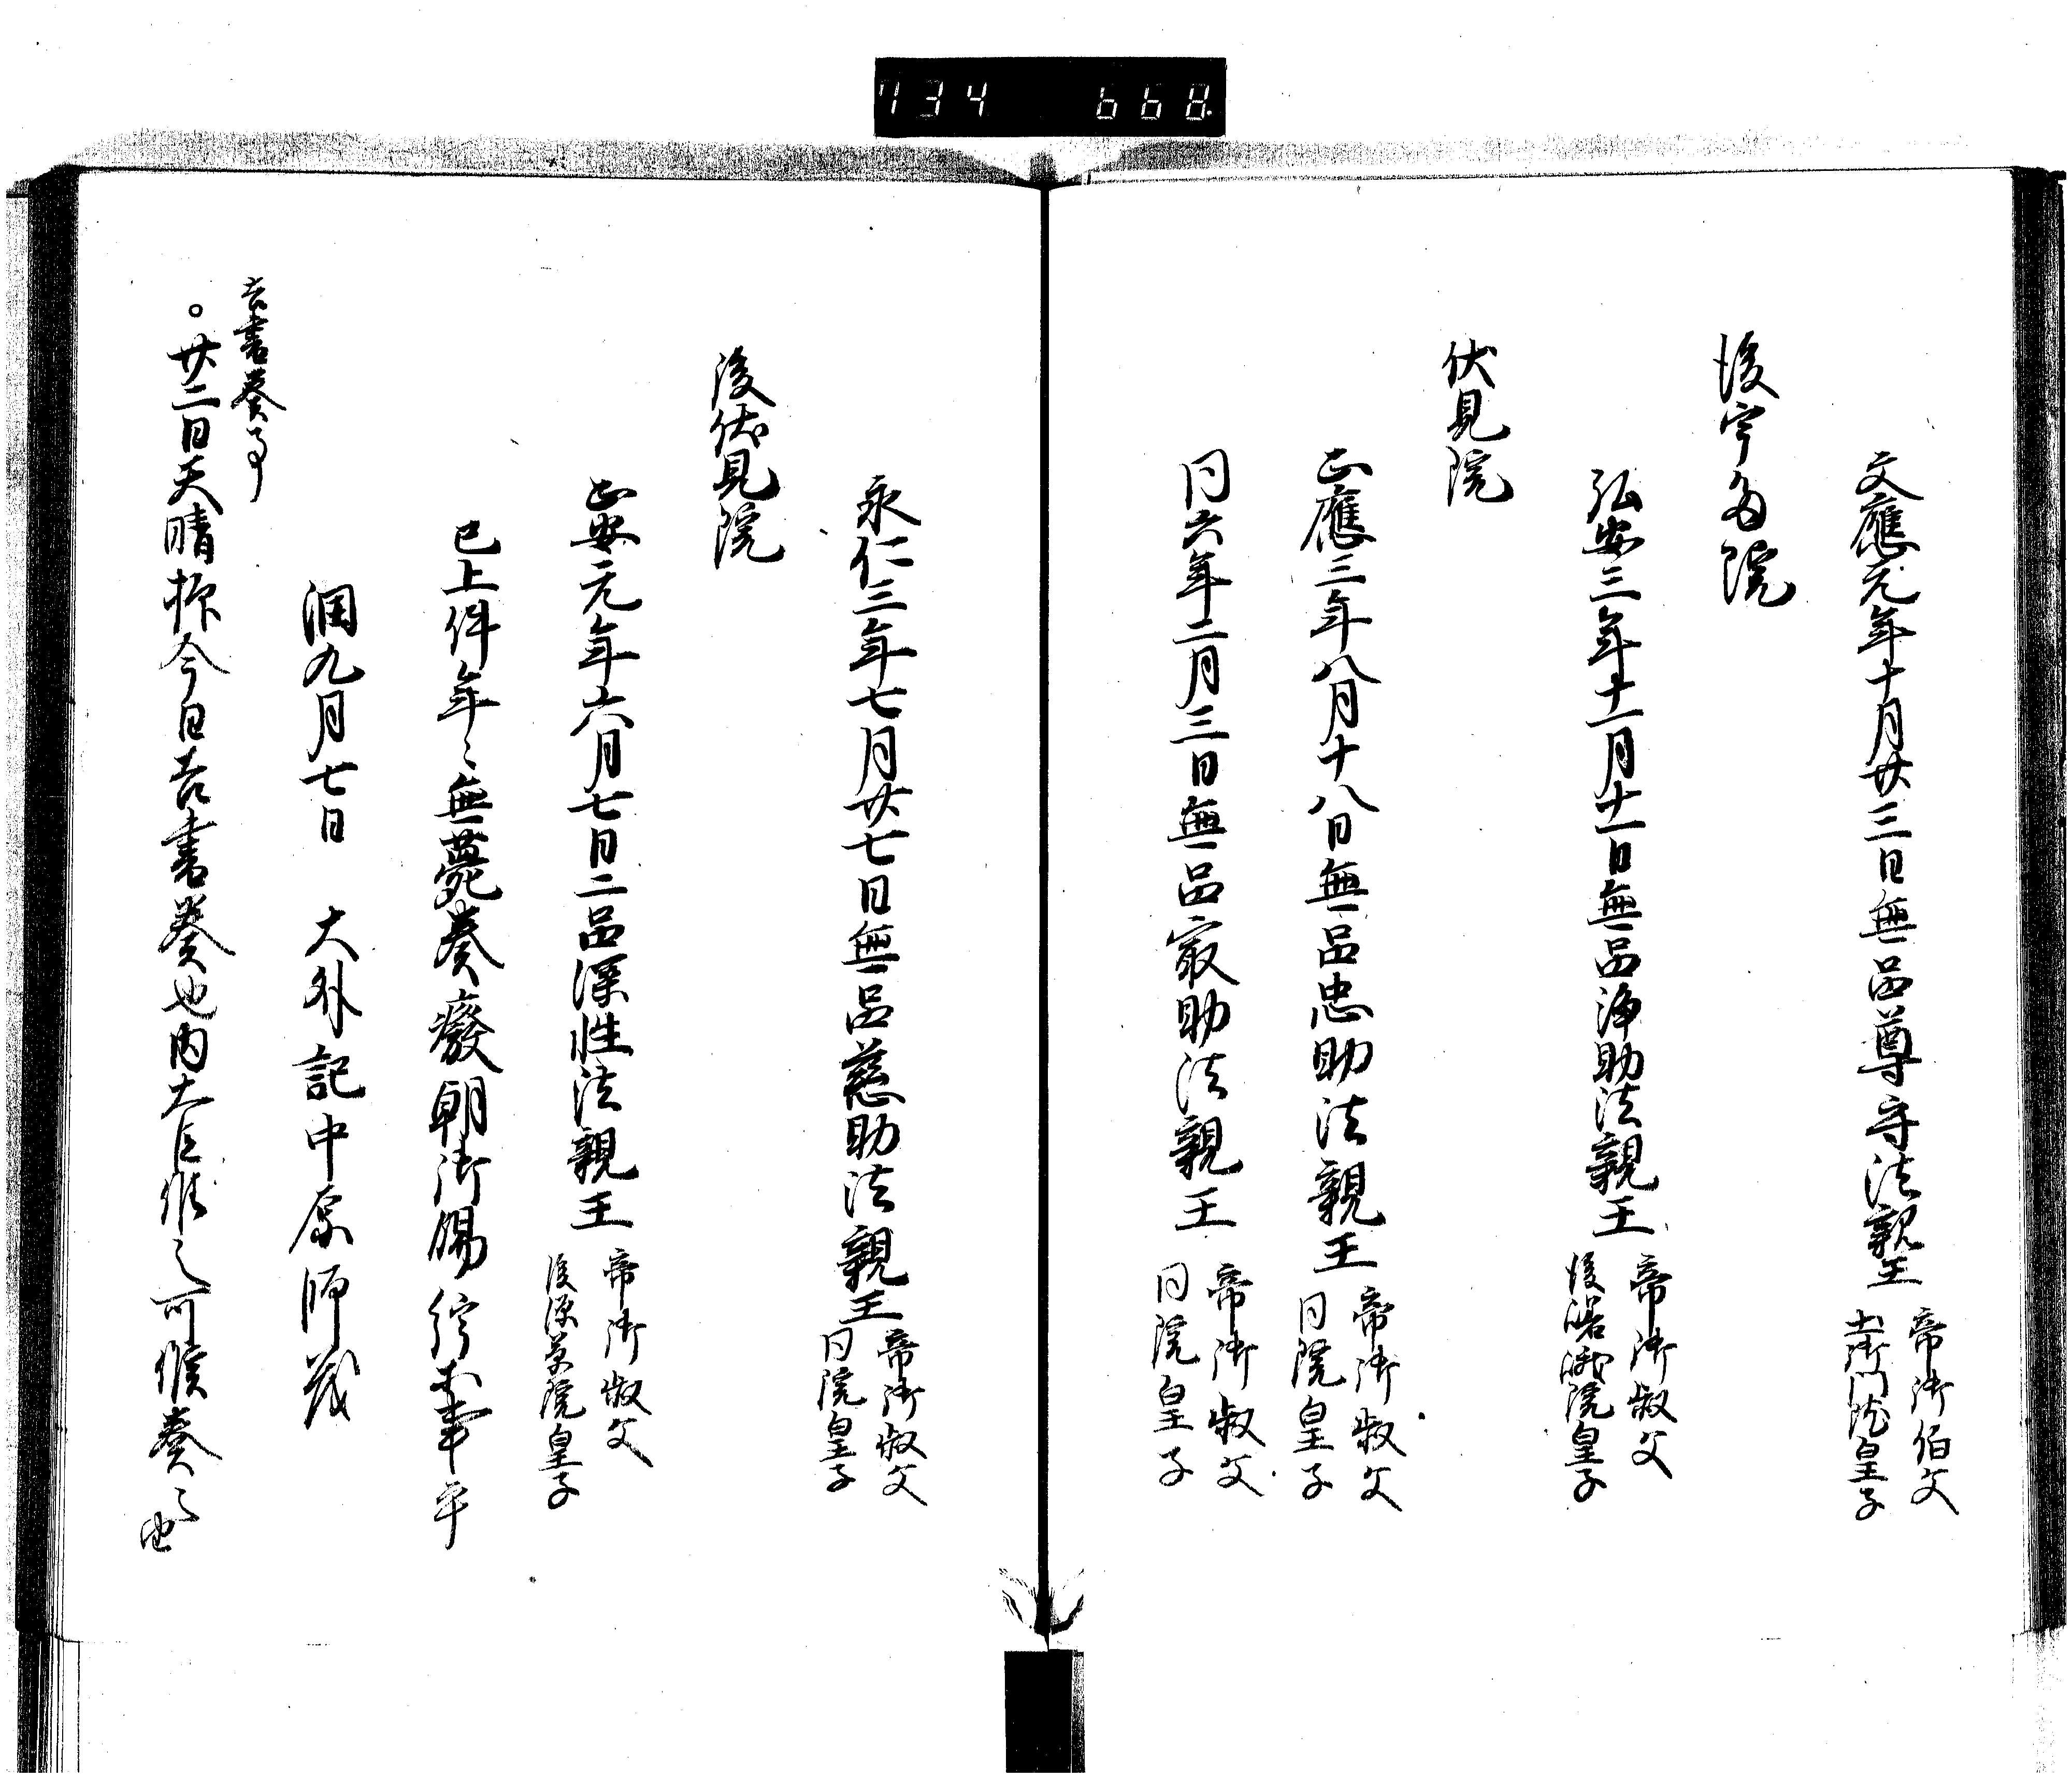 734 668
文應元年十月廿三日無品尊守法親王 帝御伯父
土御門院皇子
後宇多院
弘安三年十一月十一日無品浄助法親王 帝御叔父
後嵯峨院皇子
伏見院
正應三年八月十八日無品忠助法親王 帝御叔父
同院皇子
同六年二月三日無品最助法親王 帝御叔父
同院皇子
永仁三年七月廿七日無品慈助法親王 帝御叔父
同院皇子
後伏見院
正安元年六月七日二品深性法親王 帝御叔父
後深草院皇子
已上件年々無薨奏廢朝御錫紵等事乎
潤九月七日 大外記中原師茂
吉書奏事
。廿二日天晴抑今日吉書奏也内大臣候之可候奏之由